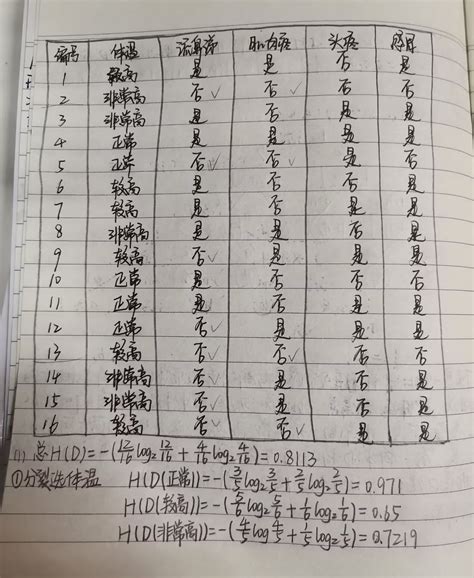 编号 体温 流鼻涕 肌肉疼 头疼 感冒
1 较高 是 是 否 是
2 非常高 否 ✓ 否 ✓ 否 否
3 非常高 是 否 是 是
4 正常 是 是 是 是
5 正常 否 ✓ 否 ✓ 是 否
6 较高 是 否 否 是
7 较高 是 否 是 是
8 非常高 是 是 是 是
9 较高 否 ✓ 是 是 是
10 正常 是 否 否 否
11 正常 是 否 是 是
12 正常 否 ✓ 是 是 是
13 较高 否 ✓ 否 ✓ 否 否
14 非常高 否 ✓ 是 是 是
15 非常高 否 ✓ 是 否 是
16 较高 否 ✓ 否 ✓ 是 是
(1) 总H(D)=-(12/16 log₂ 12/16 + 4/16 log₂ 4/16)=0.8113
①分裂选体温 H(D(正常))=-(3/5 log₂ 3/5 + 2/5 log₂ 2/5)=0.971
H(D(较高))=-(5/6 log₂ 5/6 + 1/6 log₂ 1/6)=0.65
H(D(非常高))=-(4/5 log 4/5 + 1/5 log₂ 1/5)=0.7219